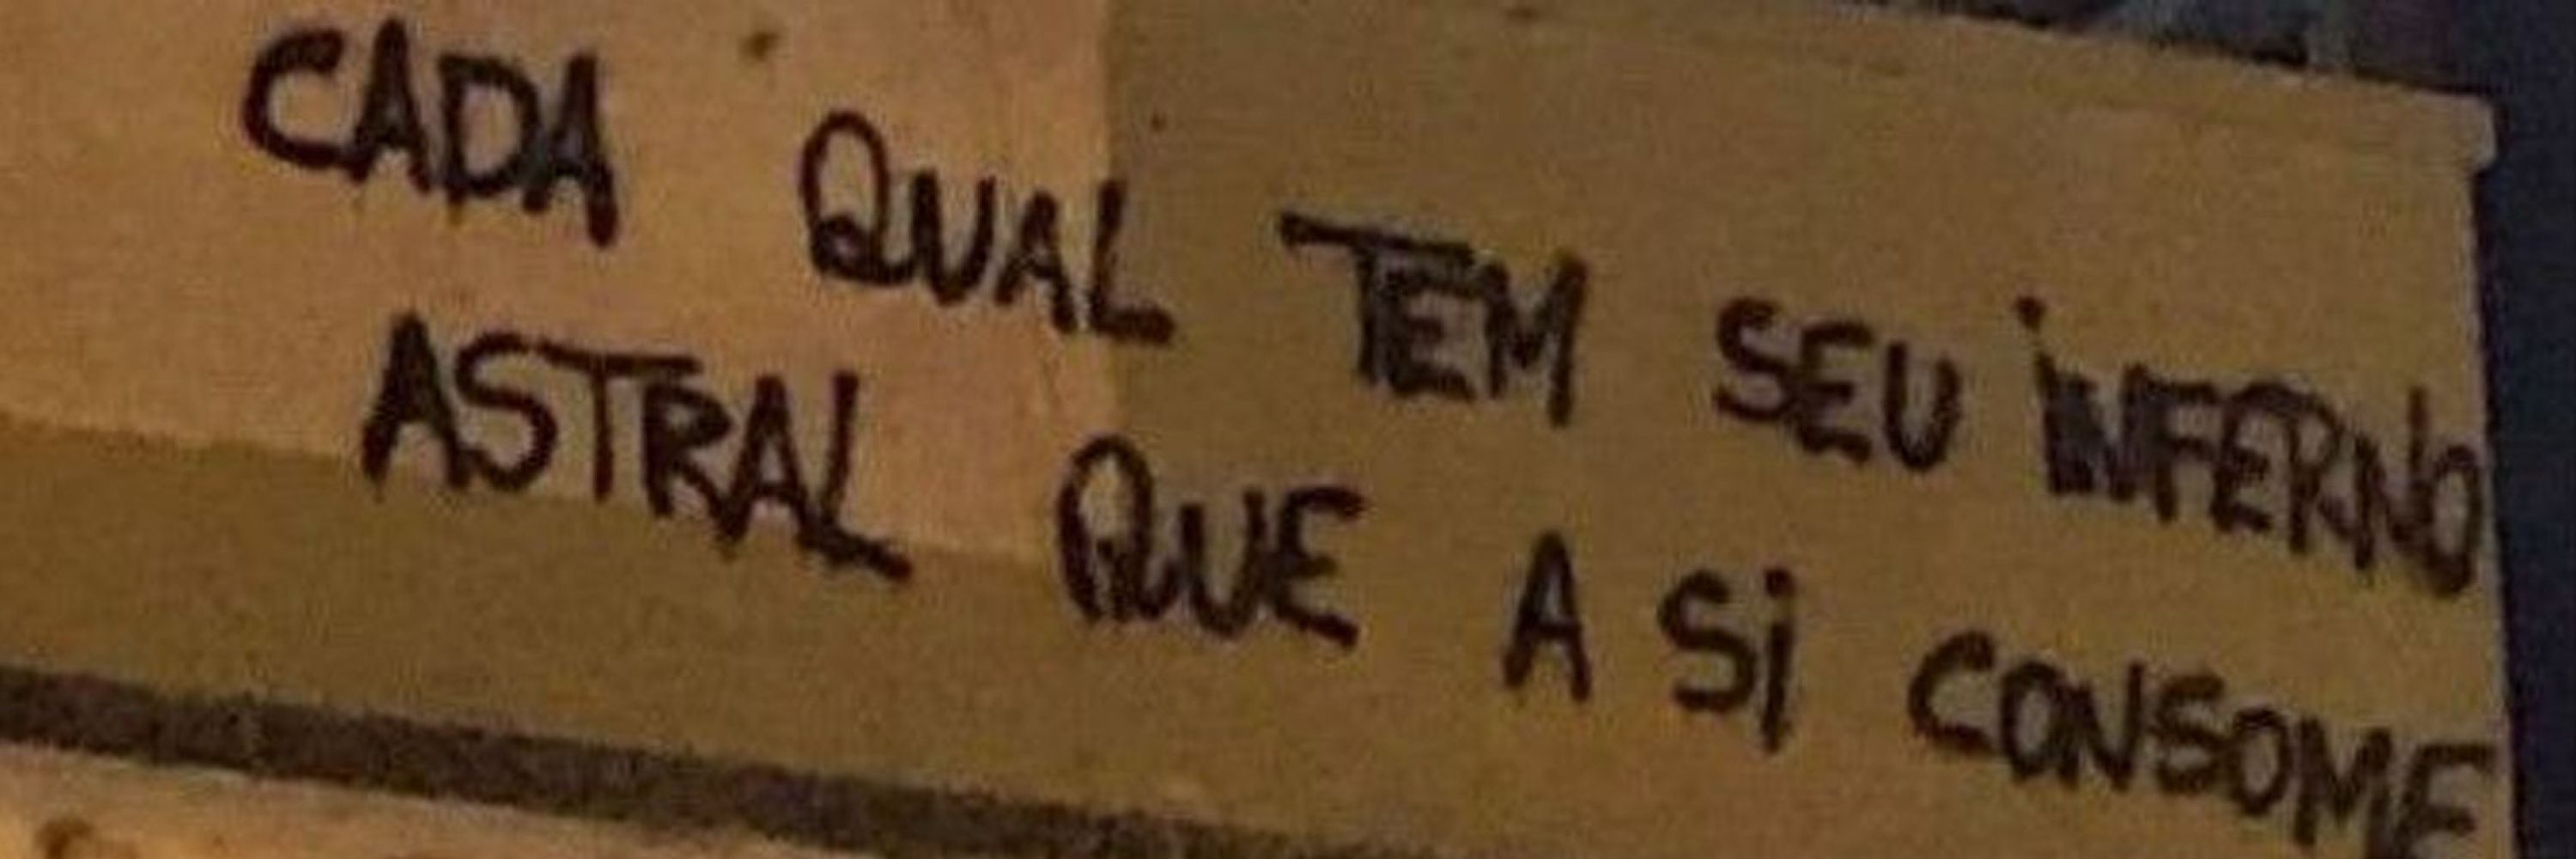 CADA QUAL TEM SEU INFERNO
ASTRAL QUE A SI CONSOME